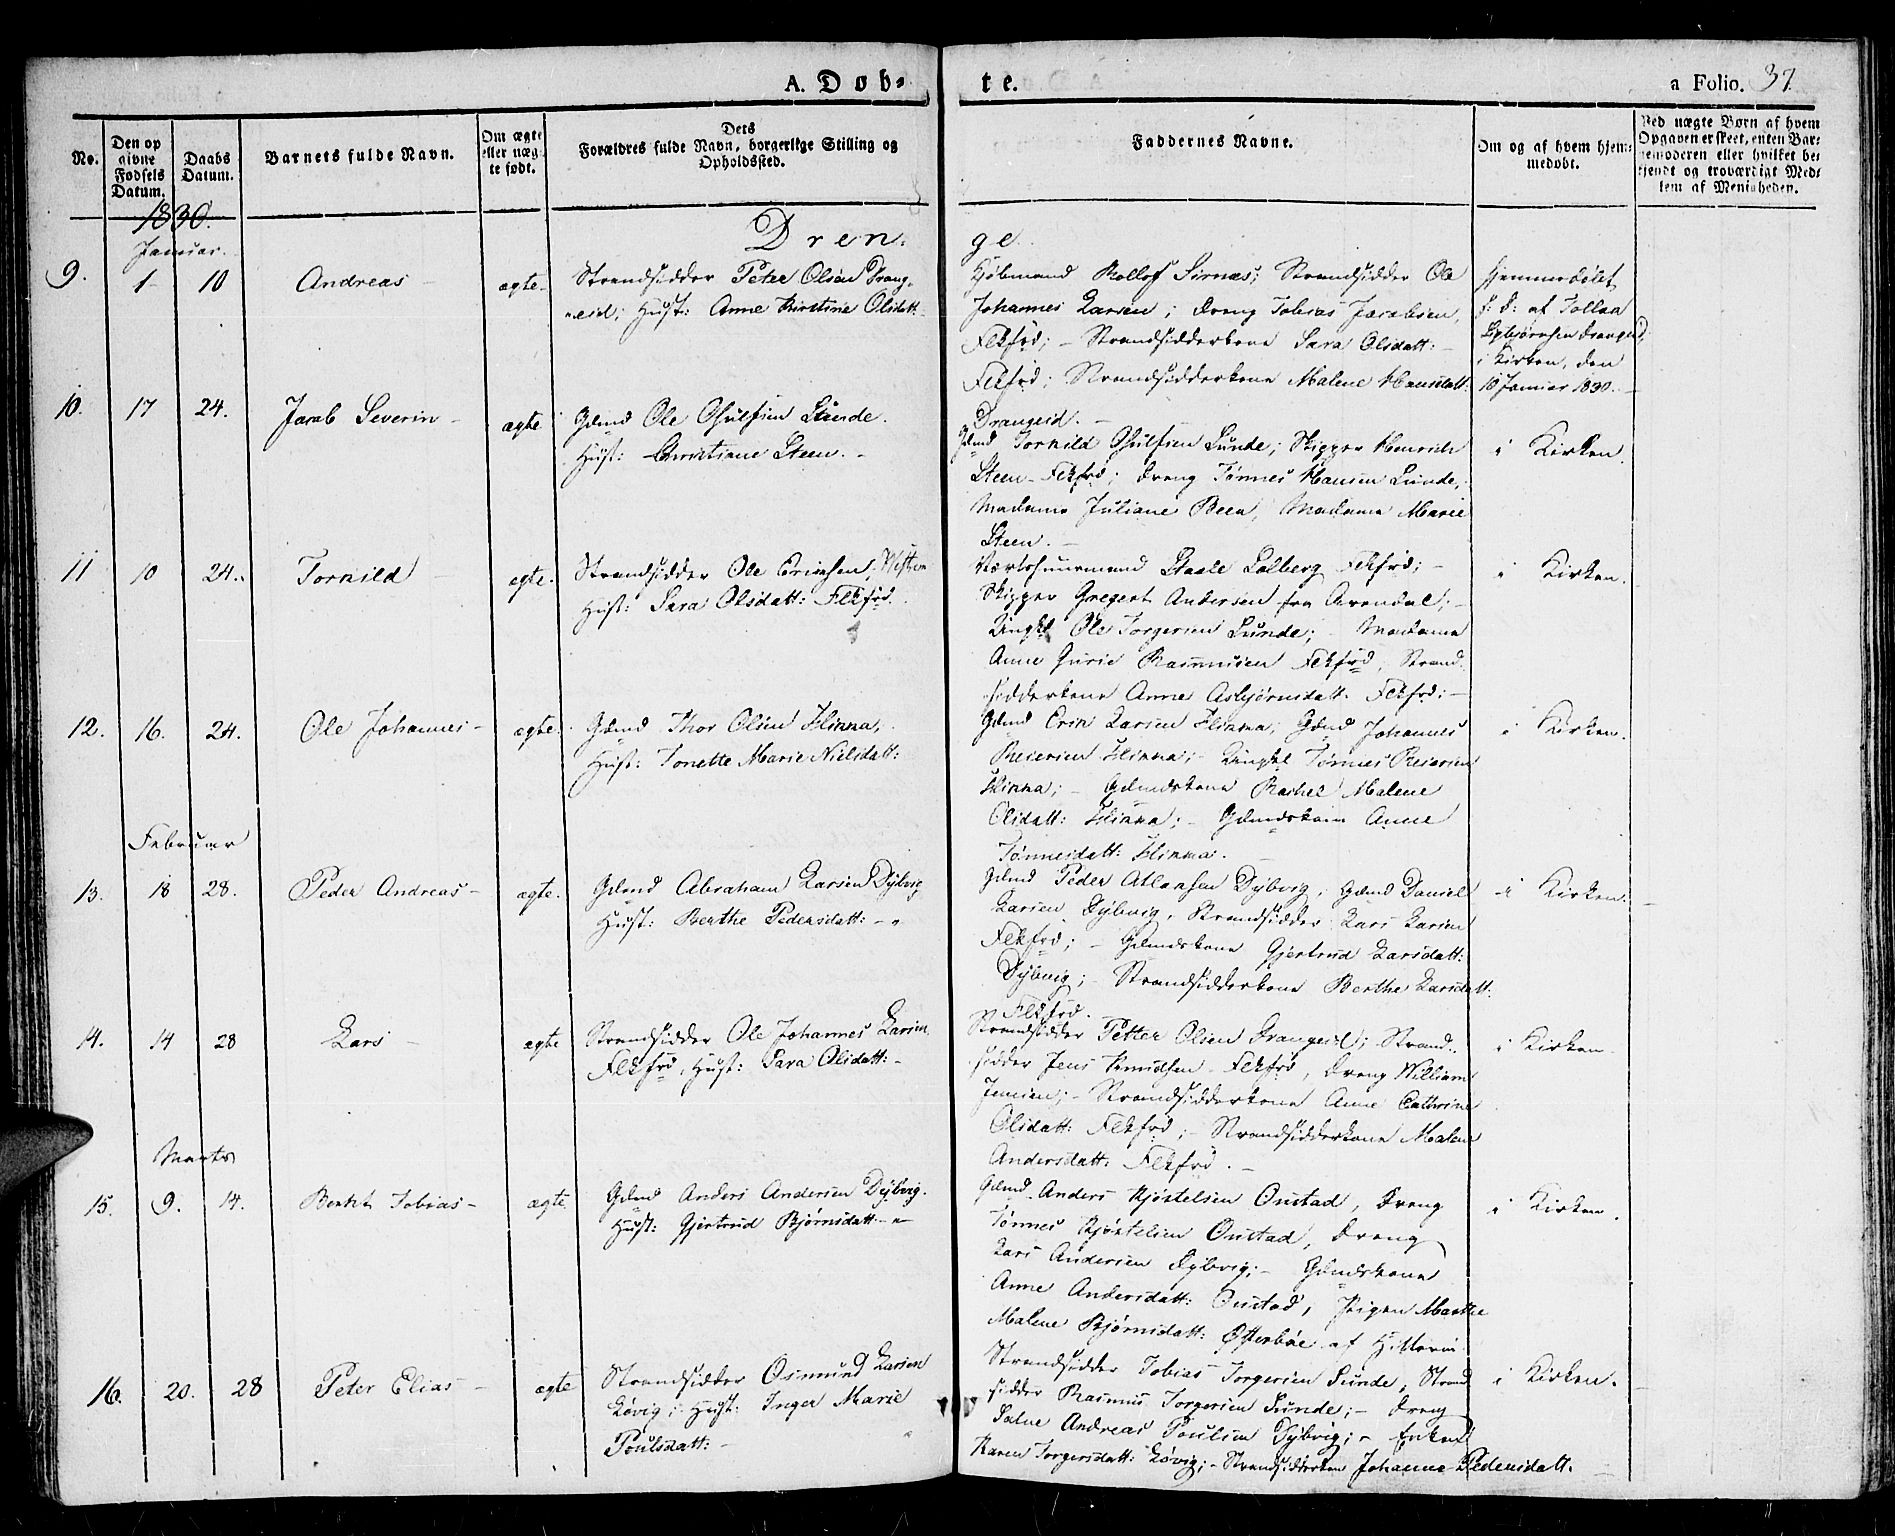 A. Døb-
te.
a Folio. 37.
No.
Den opgivne Fødsels Datum.
Daabs Datum.
Barnets fulde Navn.
Om ægte eller uægte født.
Dets Forældres fulde Navn, borgerlige Stilling og Opholdssted.
Faddernes Navne.
Om og af hvem hjemmedøbt.
Ved uægte Børn af hvem Opgaven er skeet, enten Barnemoderen eller hvilket bekjendt og troværdigt Medlem af Menigheden.
1830.
Dren-
ge.
Januar.
9. 1 10 Andreas ægte.
Strandsidder Peter Olsen Drang-
eid; Hust: Anne Kirstine Olsdatt:
Kjøbmand Rollof Sirnæs; Strandsidder Ole
Johannes Larsen; Dreng Tobias Jacobsen,
Flekfrd; - Strandsidderkone Sara Olsdatt: -
Flekfrd; Strandsidderkone Malene Hansdatt:
Drangeid. -
Hjemmedøbt
af Tollaa
Drangeid
i Kirken, den
10 Januar 1830.
10. 17 24. Jacob Severin - ægte
Gdmd Ole Osulfsen Lunde.
Hust: Christiane Steen. -
Gdmd Tornild Osulfsen Lunde; Skipper Henrich
Steen - Flekfrd; Dreng Tønnes Hansen Lunde,
Madame Juliane Beer, Madame Marie
Steen. -
i Kirken.
11 10 24. Tornild - ægte.
Strandsidder Ole Erichsen,
Hust: Sara Olsdatt: Flekfrd.
Staale Solberg Flekfrd; -
Skipper Gregert Andersen fra Arendal; -
Ungkl Ole Torgersen Lunde; - Madame
Anne Gurie Rasmussen Flekfrd, Strand-
sidderkone Anne Asbjørnsdatt: Flekfrd: -
i Kirken.
12. 16. 24. Ole Johannes - ægte.
Gdmd Thor Olsen Flinna,
Hust: Tonette Marie Nielsdatt:
Gdmd Erik Larsen Flinna, Gdmd Johannes
Reiersen Flinna; - Ungkl Tønnes Reiersen
Flinna; - Gdmdskone Rachel Malene
Olsdatt: Flinna; - Gdmdskone Anne
Tønnesdatt: Flinna. -
i Kirken.
Februar
13. 18 28. Peder Andreas - ægte.
Gdmd Abraham Larsen Dybvig
Hust: Berthe Pedersdatt: - "
Gdmd Peder Atlaksen Dybvig, Gdmd Daniel
Larsen Dybvig, Strandsidder Lars Larsen
Flekfrd; - Gdmdskone Gjertrud Larsdatt:
Dybvig; - Strandsidderkone Berthe Larsdatt:
Flekfrd.
i Kirken.
14. 14 28 Lars - ægte
Strandsidder Ole Johannes Larsen
Flekfrd, Hust: Sara Olsdatt: -
Strandsidder Petter Olsen Drangeid; Strand-
sidder Jens Knudsen - Flekfrd, Dreng William
Jensen; - Strandsidderkone Anne Cathrine
Olsdatt: Flekfrd; - Strandsidderkone Malene
Andersdatt: Flekfrd. -
i Kirken.
Marts
15. 9. 14. Berht Tobias - ægte
Gdmd Anders Andersen Dybvig.
Hust: Gjertrud Bjørnsdatt: - " -
Gdmd Anders Kjøstelsen Oustad, Dreng
Tønnes Kjøstelsen Oustad, Dreng
Lars Andersen Dybvig; - Gdmdskone
Anne Andersdatt: Oustad, Pigen Marthe
Malene Bjørnsdatt: Østerbøe af Hitterøe
i Kirken.
16. 20. 28 Peter Elias - ægte
Strandsidder Osmund Larsen
Løvig; Hust: Inger Marie
Poulsdatt: -
Strandsidder Tobias Torgersen Sunde, Strand-
sidder Rasmus Torgersen Sunde; - Dreng
Salve Andreas Poulsen Dybvig; - Enken
Karen Torgersdatt: Løvig; - Strandsidderkone Johanne Pedersdatt:
i Kirken.